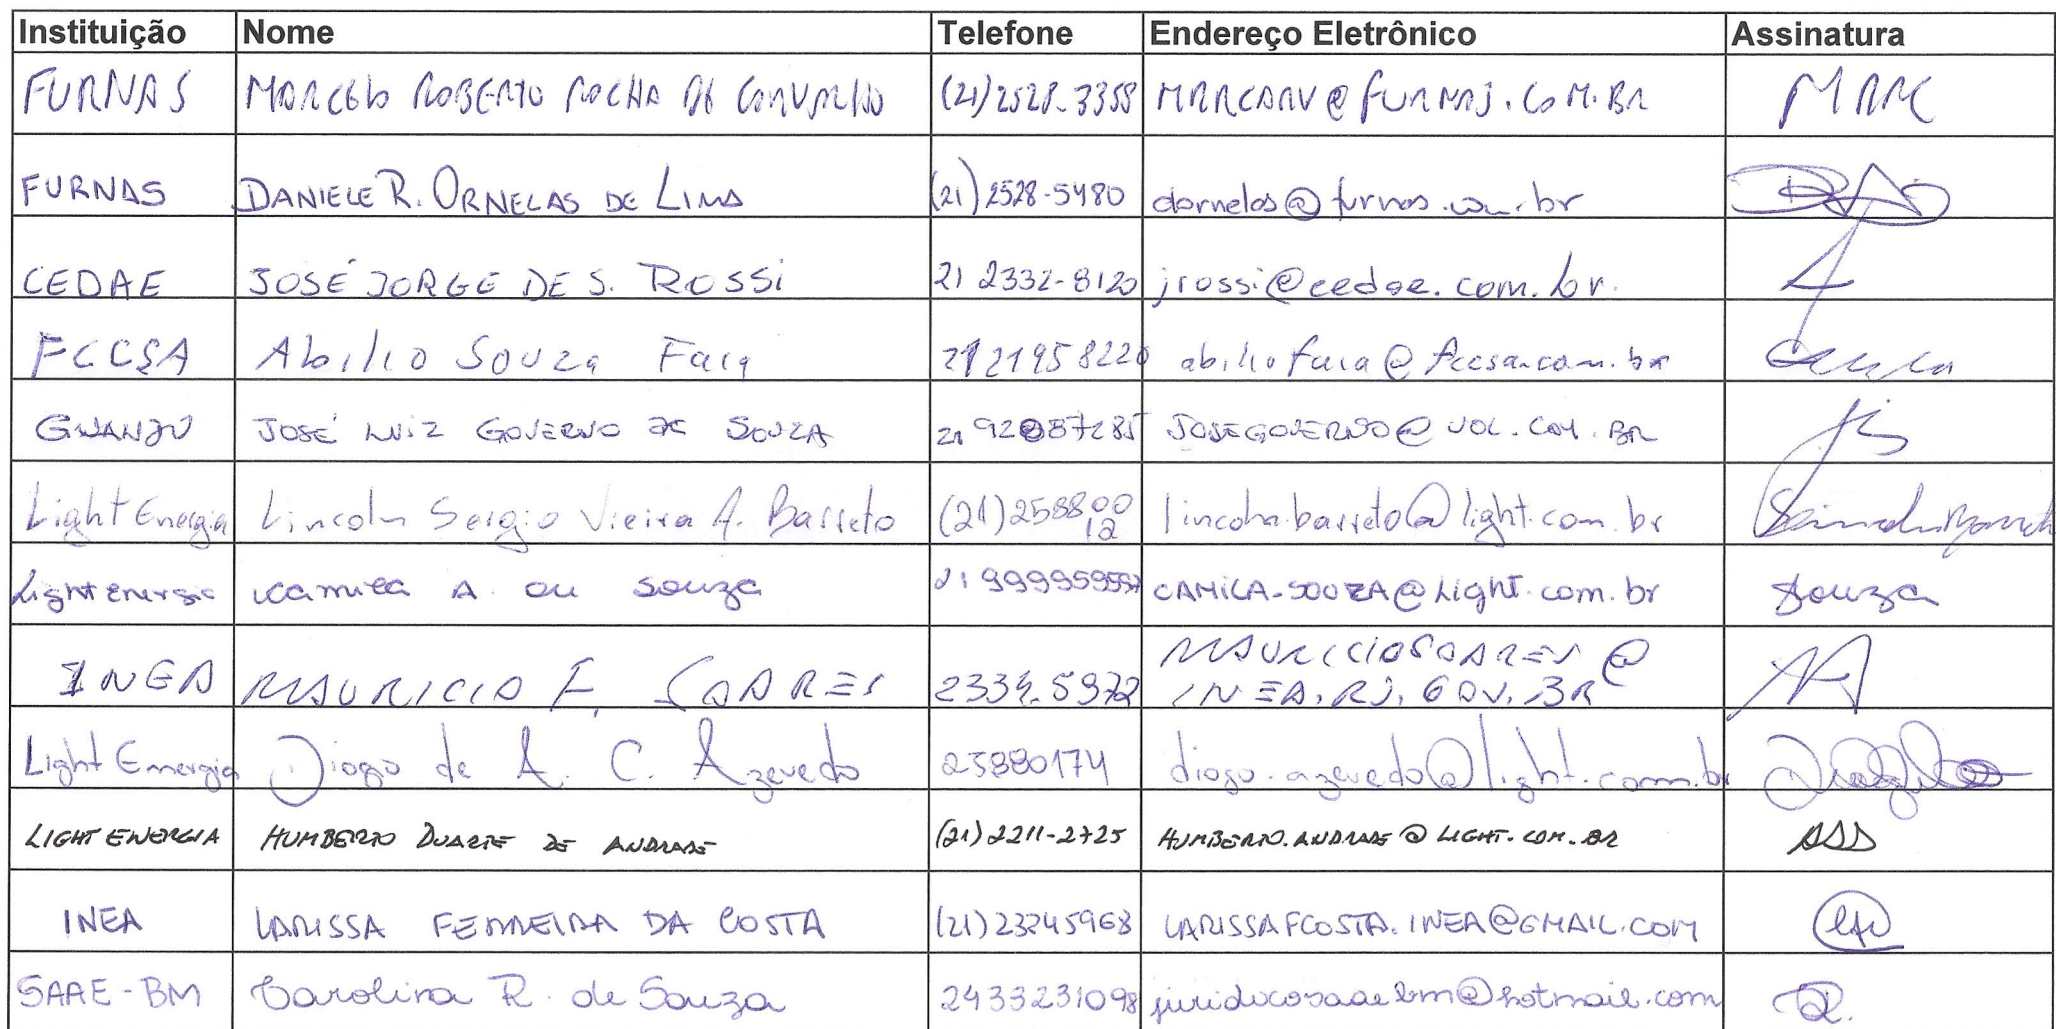 Instituição Nome Telefone Endereço Eletrônico Assinatura
FURNAS MARCELO ROBERTO ROCHA DE CARVALHO (21) 2528-3358 MARCARV@FURNAS.COM.BR MRRC
FURNAS DANIELE R. ORNELAS DE LIMA (21) 2528-5480 dornelas@furnas.com.br
CEDAE JOSÉ JORGE DE S. ROSSI 21 2332-8120 jrossi@cedae.com.br.
FCCSA Abilio Souza Faia 21 21958220 abilio faia@fccsa.com.br
GWANJU JOSÉ LUIZ GOVERNO DE SOUZA 21 920857285 JOSEGOVERNO@UOL.COM.BR
Light Energia Lincoln Sergio Vieira A. Barreto (21) 258800 lincoln.barreto@light.com.br
12
Light energia Camila A. de Souza 21 999959597 CAMILA.SOUZA@Light.com.br Souza
MAURICIOSOARES@
INEA MAURICIO F. SOARES 2334.5972 INEA.RJ.GOV.BR
Light Energia Diogo de A. C. Azevedo 25880174 diogo.azevedo@light.com.br
LIGHT ENERGIA HUMBERTO DUARTE DE ANDRADE (21) 2211-2725 HUMBERTO.ANDRADE@LIGHT.COM.BR
INEA LARISSA FERREIRA DA COSTA (21) 23345968 LARISSAFCOSTA.INEA@GMAIL.COM
SAAE-BM Carolina R. de Souza 2433231098 juridicosaaebm@hotmail.com